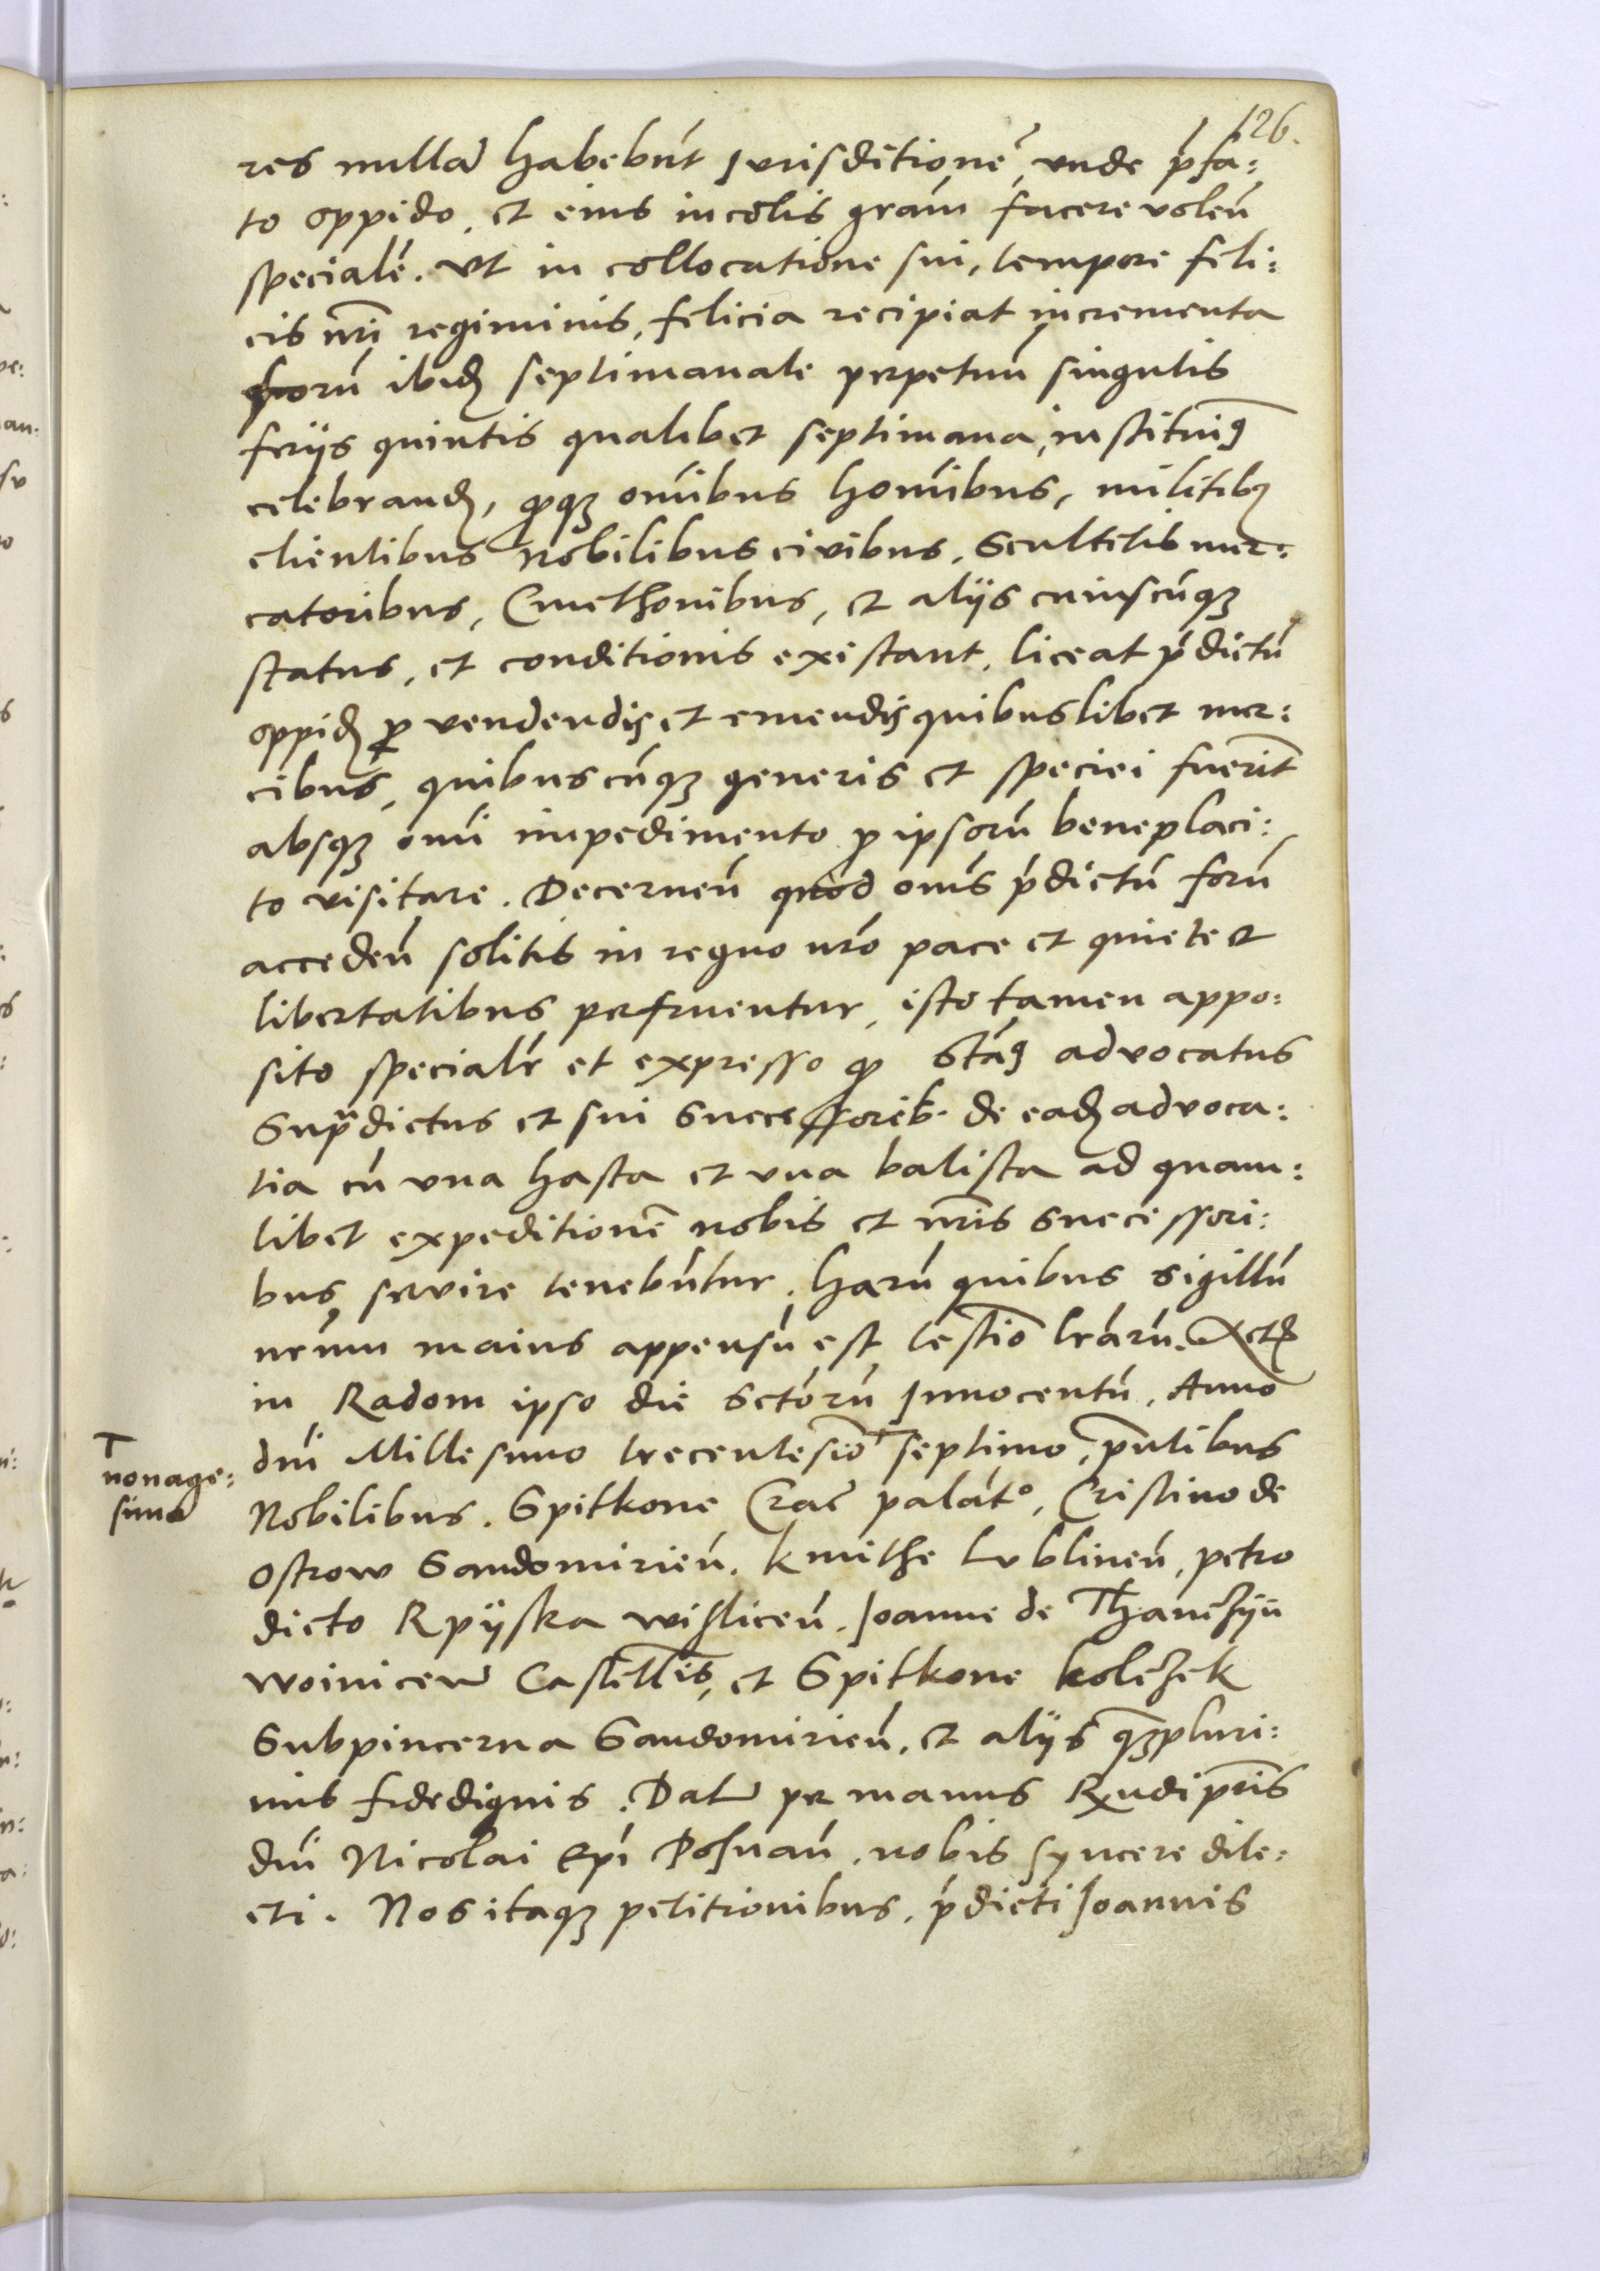 126.
res nullā habebūt Jurisditionē, vnde p̄fa:
to oppido, et eius incolis gr̄am facere voleñ
specialē. Vt in collocatione sui, tempore feli:
cis nr̄i regiminis, felicia recipiat incrementa
forū ibid septimanale perpetuū singulis
ferijs quintis qualibet septimana, instituim9
celebrand, ꝓqꝫ om̄ibus homībus, militibꝫ
clientibus nobilibus civibus, Scultetis mer:
catoribus, Cmethonibus, et alijs cuiuscūqꝫ
status, et conditionis existant, liceat p̄dictū
oppid ꝓ vendendis et emendis quibuslibet mer:
cibus, quibuscūqꝫ generis et speciei fuerīt
absqꝫ om̄i impedimento ꝓ ipsorū beneplaci:
to visitare. Decerneñ quod om̄s p̄dictū forū
accedeñ solitis in regno nr̄o pace et quiete et
libertatibus perfruentur, isto tamen appo:
sito specialr̄ et expresso ꝙ Stā9 advocatus
Supradictus et sui Successorib. de ead advoca:
tia cū vna hasta et vna balista ad quam:
libet expeditionē nobis et nr̄is Successori:
bus, servire tenebūtur. Harū quibus sigillū
nr̄um maius appensū est, testīo lr̄arū. Actꝫ
in Radom ipso die Sctorū Innocentū, Anno
dn̄i Millesimo trecentesīo ⊤ septimo, pn̄tibus
⊤ nonage:
simo
Nobilibus. Spitkone Crac̄ palat°, Cristino de
Ostrow Sandomirieñ. Kmithe Lublineñ, petro
dicto Rpijska wisliceñ. Joanne de Thanczyn
woiniceñ Castellīs, et Spitkone kolczek
Subpincerna Sandomirieñ, et alijs qꝫpluri:
mis fidedignis. Datū per manus Rxndi pr̄is
dn̄i Nicolai Ep̄i Posnañ, nobis syncere dile:
cti. Nos itaqꝫ petitionibus, p̄dicti Joannis